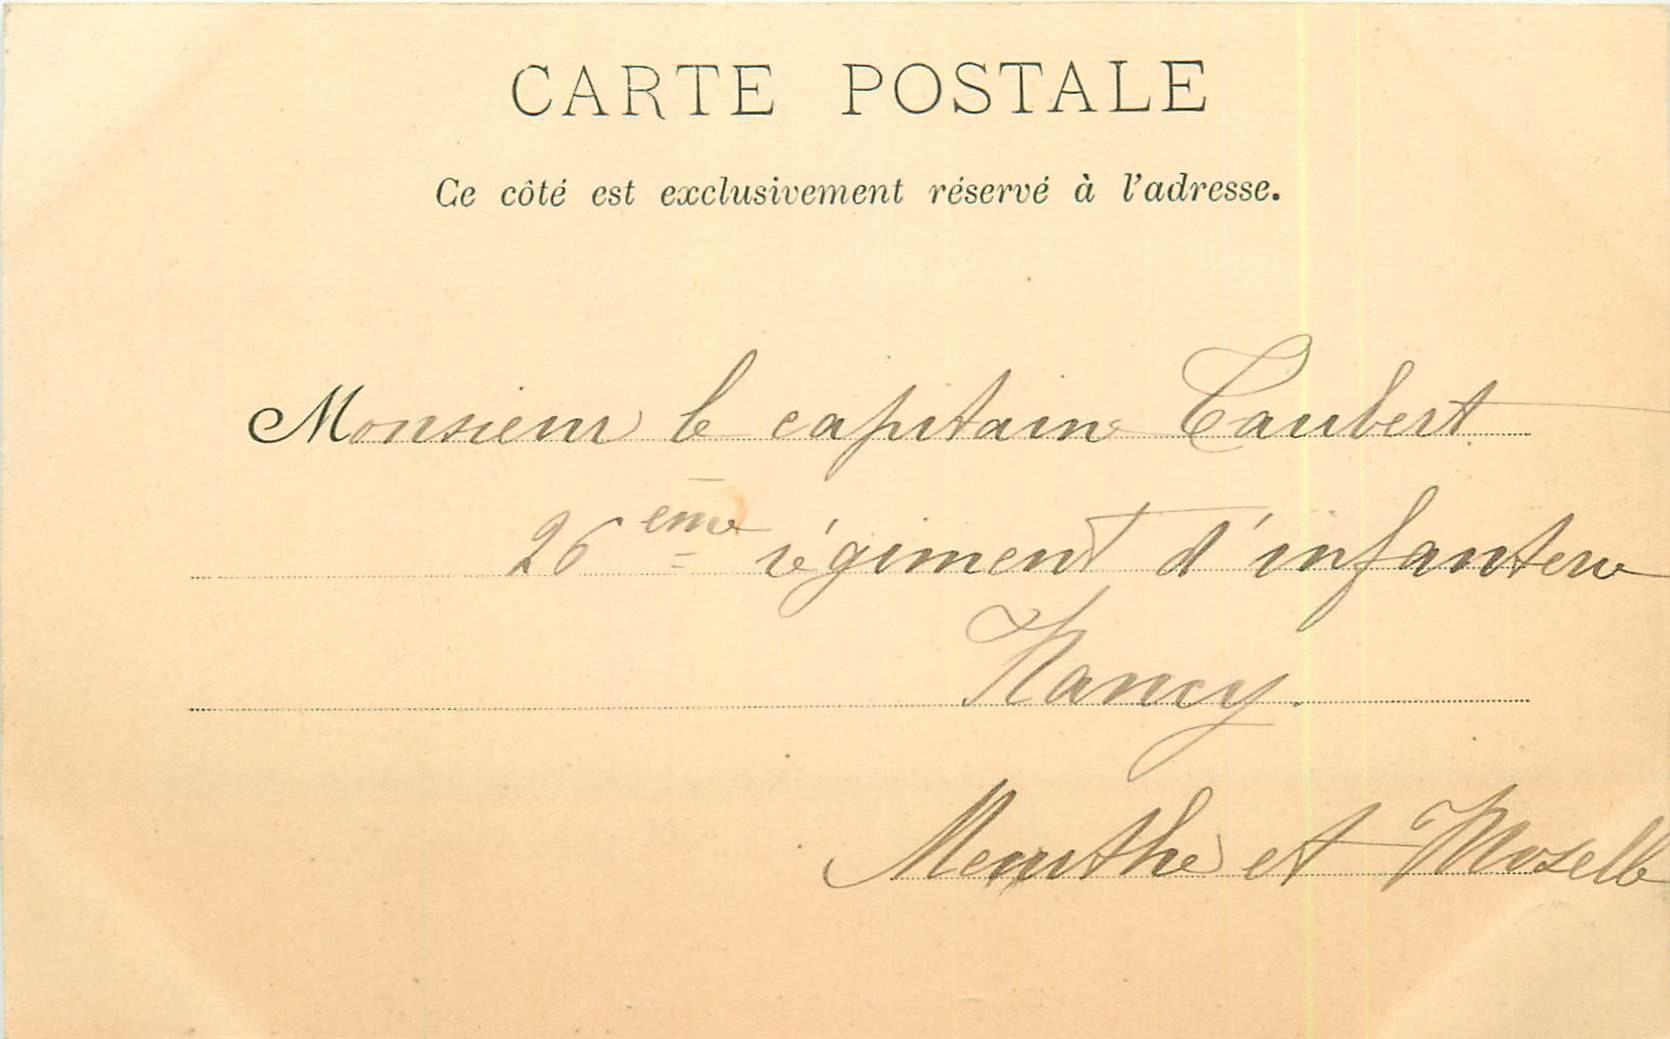 CARTE POSTALE
Ce côté est exclusivement réservé à l'adresse.
Monsieur le capitaine Caubert
26ème régiment d'infanterie
Nancy.
Meurthe et Moselle